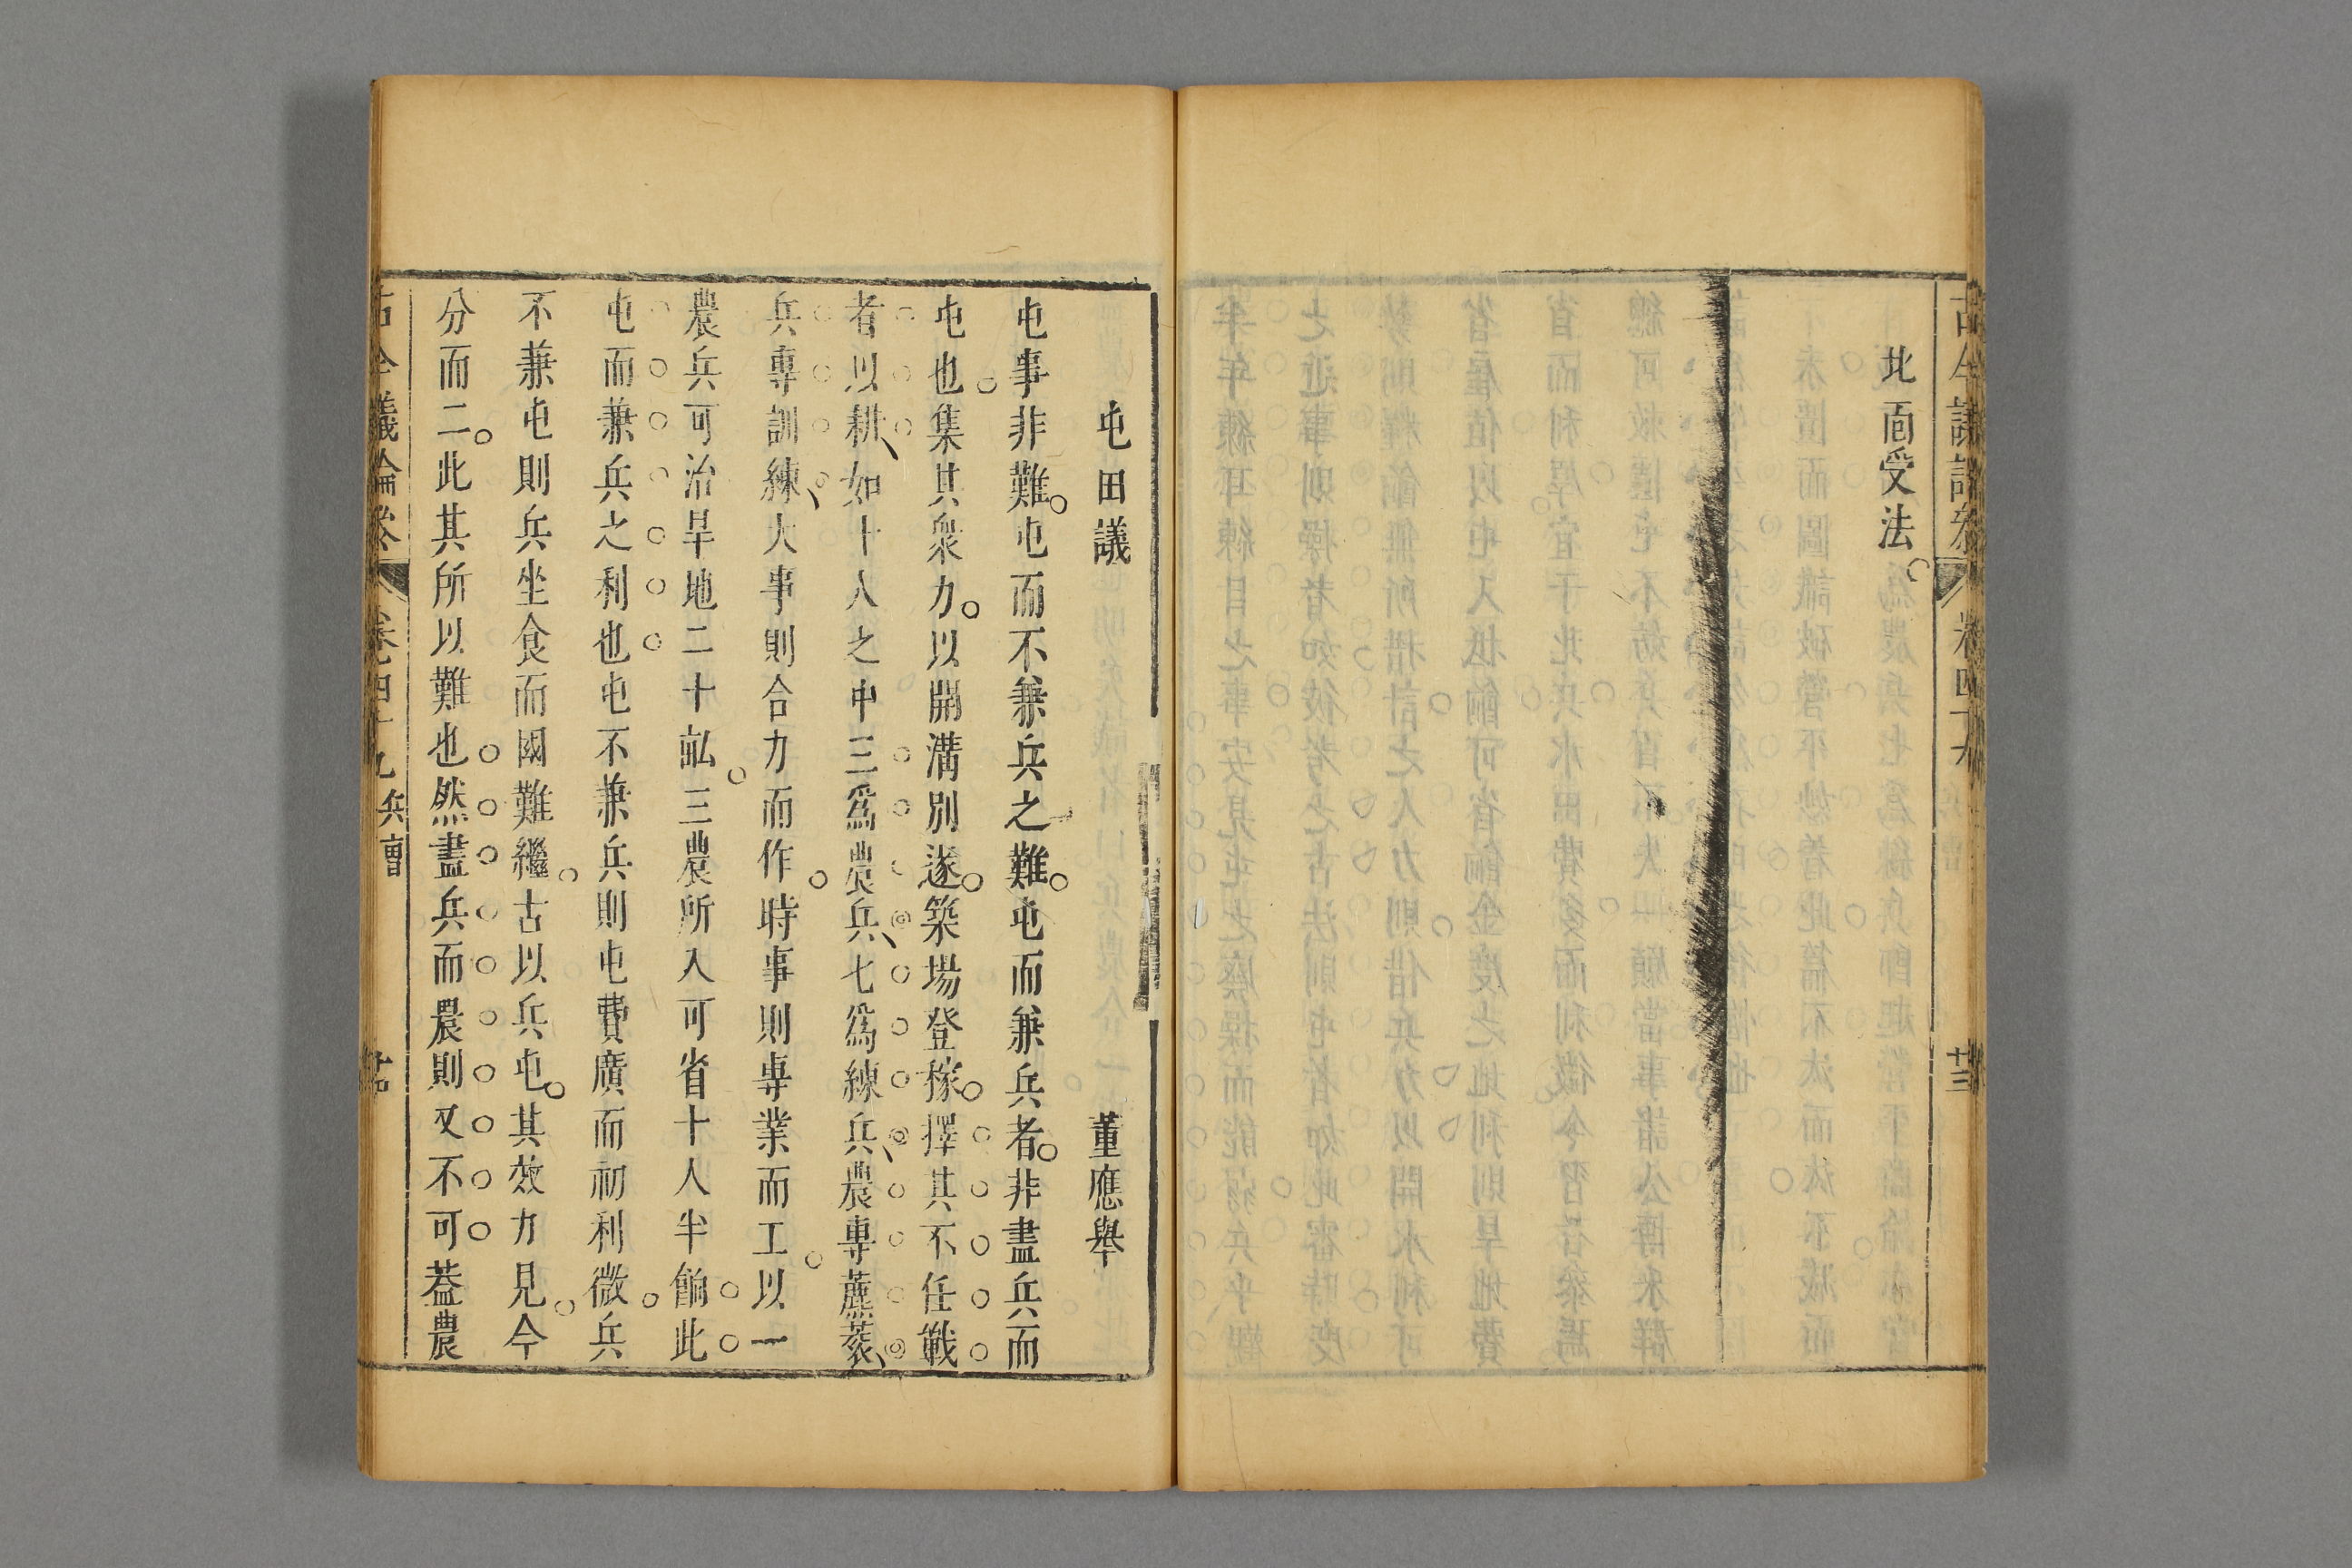 北面受法
屯田議　董應舉
屯事非難屯而不兼兵之難屯而兼兵者非盡兵而
屯也集其衆力以開溝別遂築場登稼擇其不任戰
者以耕如十人之中三爲農兵七爲練兵農專藨蓘
兵專訓練大事則合力而作時事則專業而工以一
農兵可治旱地二十畝三農所入可省十人半餉此
屯而兼兵之利也屯不兼兵則屯費廣而初利微兵
不兼屯則兵坐食而國難繼古以兵屯其效力見今
分而二此其所以難也然盡兵而農則又不可葢農
古今議論參　卷四十九　兵曹